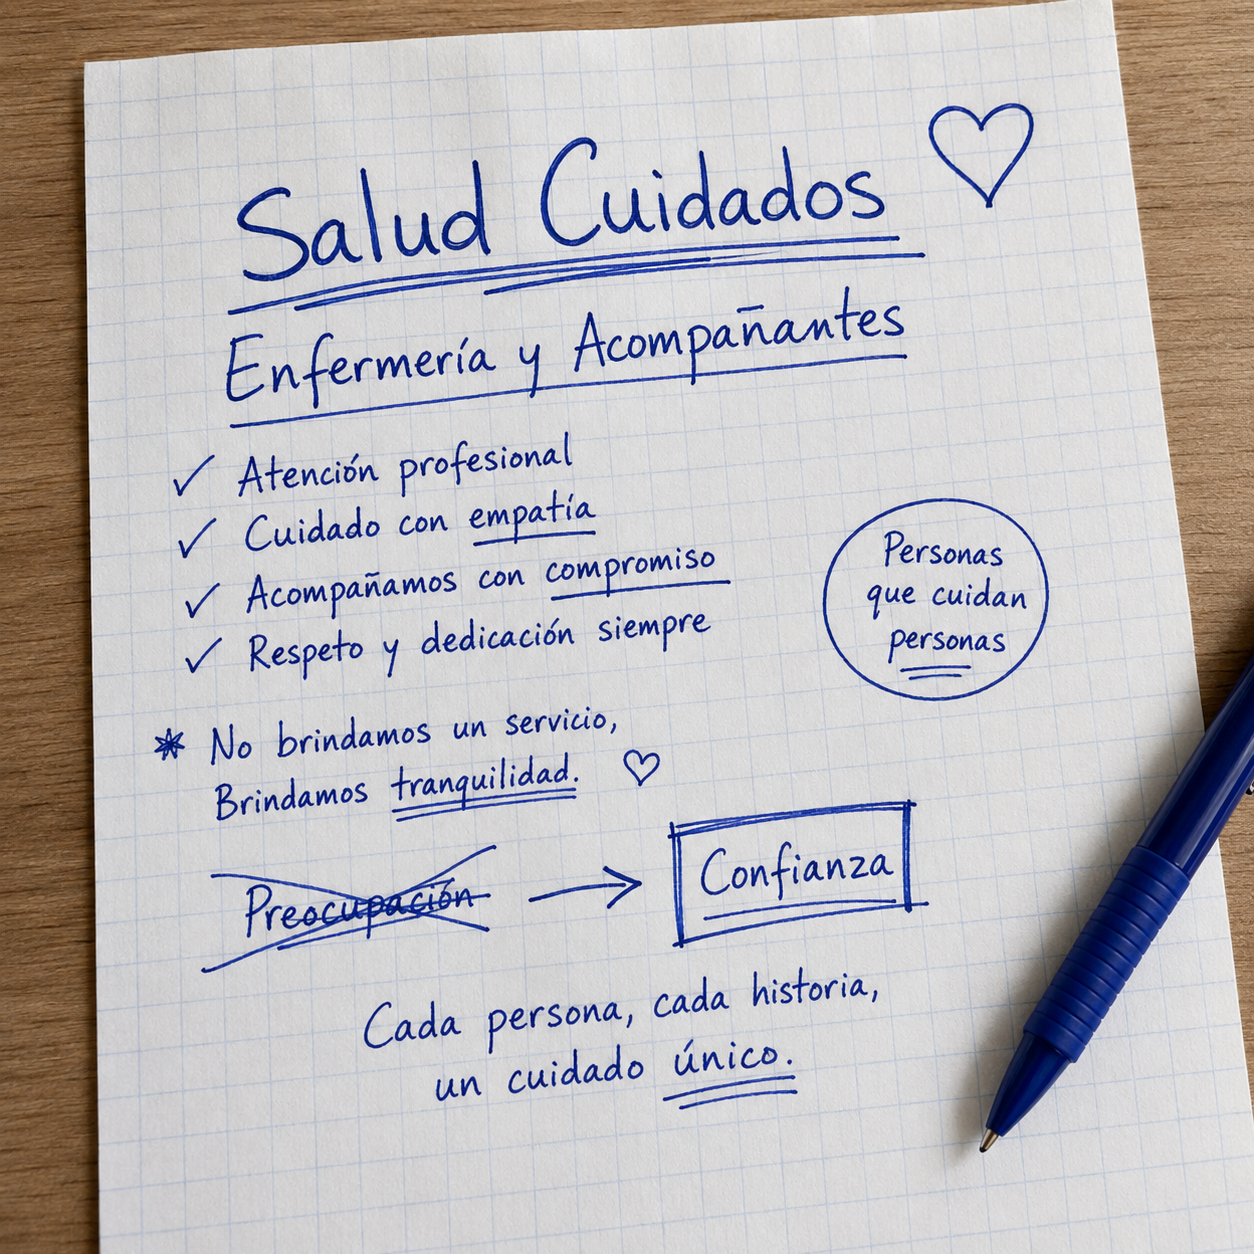 Salud Cuidados
Enfermería y Acompañantes
✓ Atención profesional
✓ Cuidado con empatía
✓ Acompañamos con compromiso
✓ Respeto y dedicación siempre
Personas
que cuidan
personas
* No brindamos un servicio,
Brindamos tranquilidad.
Preocupación → Confianza
Cada persona, cada historia,
un cuidado único.